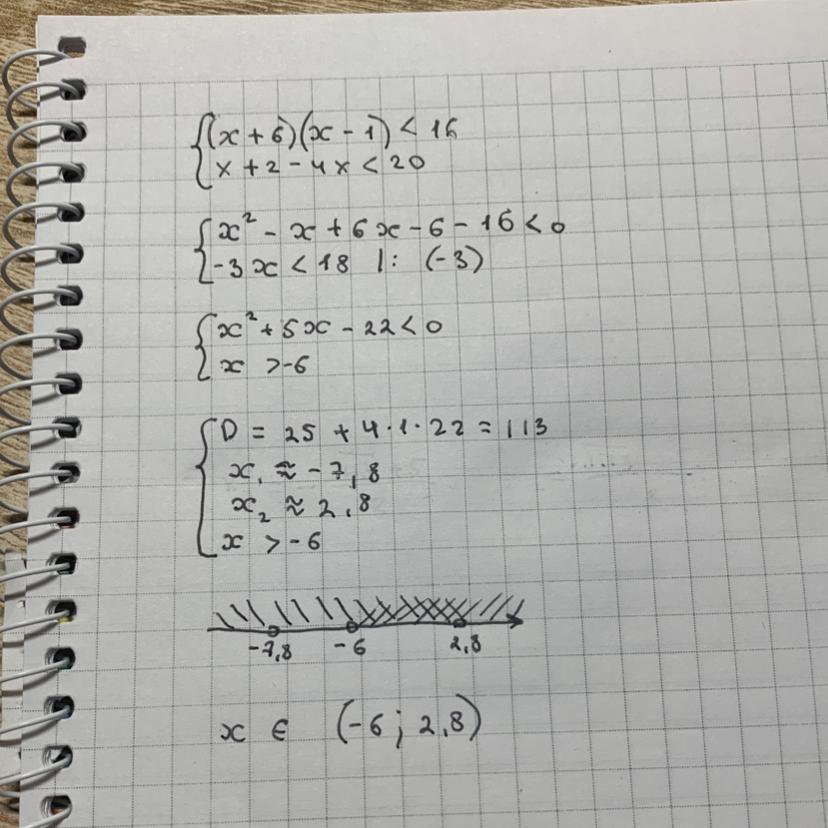 (x + 6)(x - 1) < 16
x + 2 - 4x < 20
x² - x + 6x - 6 - 16 < 0
-3x < 18 |: (-3)
x² + 5x - 22 < 0
x > -6
D = 25 + 4·1·22 = 113
x₁ ≈ -7,8
x₂ ≈ 2,8
x > -6
-7,8 -6 2,8
x ∈ (-6; 2,8)